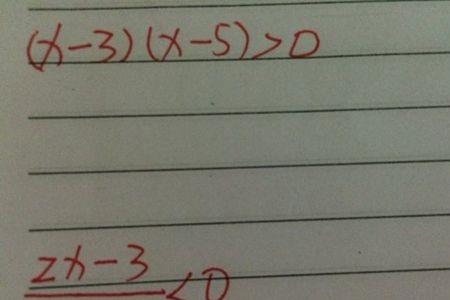 (x-3)(x-5)>0
2x-3
<0